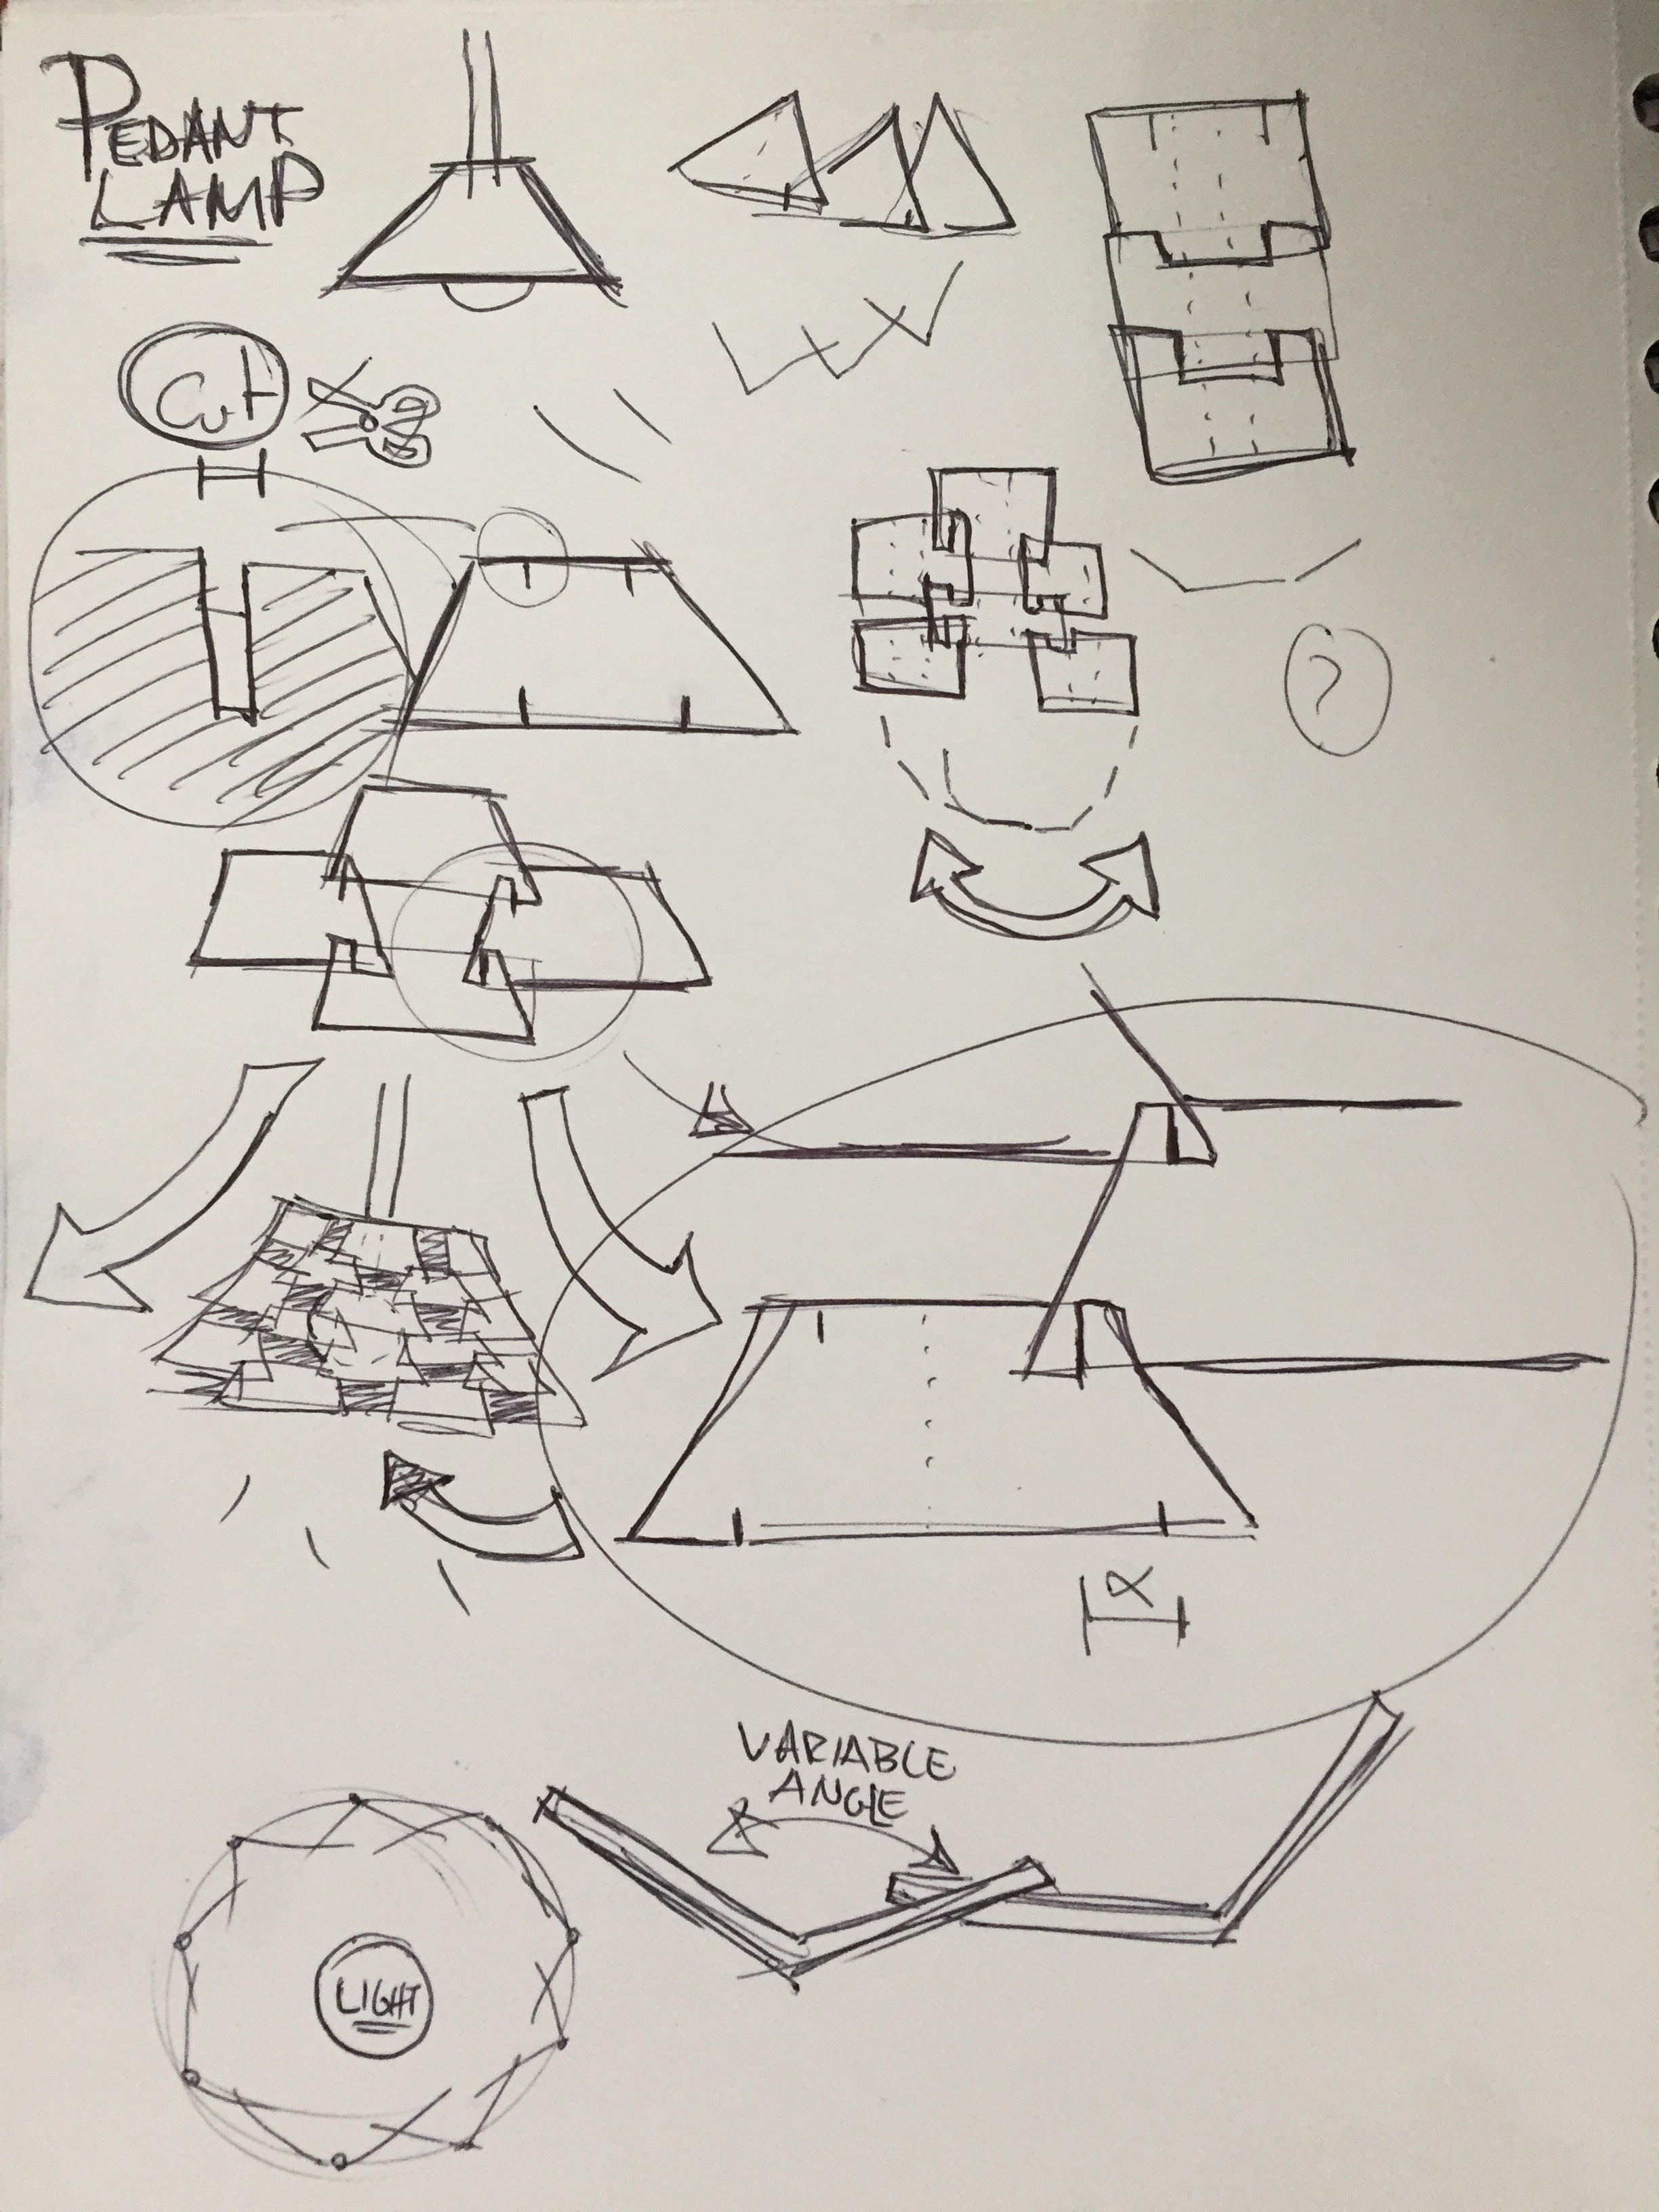 PEDANT
LAMP
Cut
?
α
VARIABLE
ANGLE
LIGHT